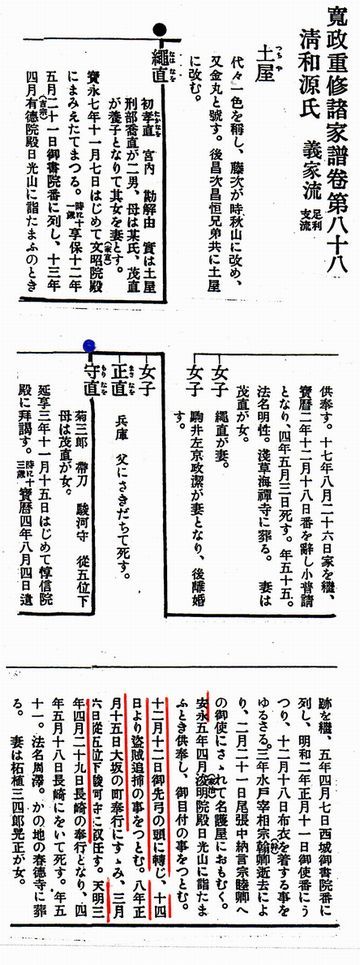 寛政重修諸家譜卷第八十八
清和源氏　義家流　足利支流
土屋
つちや
代々一色を稱し、藤次が時秋山に改め、
又金丸と號す。後昌次昌恒兄弟共に土屋
に改む。
繩直
なはなほ
初孝直　宮内　勘解由　實は土屋
たかなほ
刑部喬直が二男、母は某氏、茂直
が養子となりて其女を妻とす。
寶永七年十一月七日はじめて文昭院殿
にまみえたてまつる。時に十一歳 享保十二年
五月二十一日御書院番に列し、十三年
四月有德院殿日光山に詣たまふのとき
供奉す。十七年八月二十六日家を繼、
寶曆二年十二月十八日番を辭し小普請
となり、四年五月三日死す。年五十五。
法名明性。淺草海禪寺に葬る。　妻は
茂直が女。
女子
繩直が妻。
女子
駒井左京政潔が妻となり、後離婚
す。
女子
正直
まさなほ
兵庫　父にさきだちて死す。
守直
もりなほ
菊三郎　帶刀　駿河守　從五位下
母は茂直が女。
延享三年十一月十五日はじめて惇信院
殿に拜謁す。時に十三歳 寶曆四年八月四日遺
跡を繼、五年四月七日西城御書院番に
列し、明和二年正月十一日御使番にう
つり、十二月十八日布衣を着する事を
ゆるさる。三年水戸宰相宗翰卿逝去によ
り、二月二十一日尾張中納言宗睦卿へ
の御使にさゝれて名護屋におもむく。
安永五年四月浚明院殿日光山に詣たま
ふとき供奉し、御目付の事をつとむ。
十二月十二日御先弓の頭に轉じ、十四
日より盜賊追捕の事をつとむ。八年正
月十五日大坂の町奉行にすゝみ、三月
六日從五位下駿河守に敍任す。天明三
年四月二十九日長崎の奉行となり、四
年五月十八日長崎にをいて死す。年五
十一。法名周澤。かの地の春德寺に葬
る。　妻は柘植三四郎晃正が女。